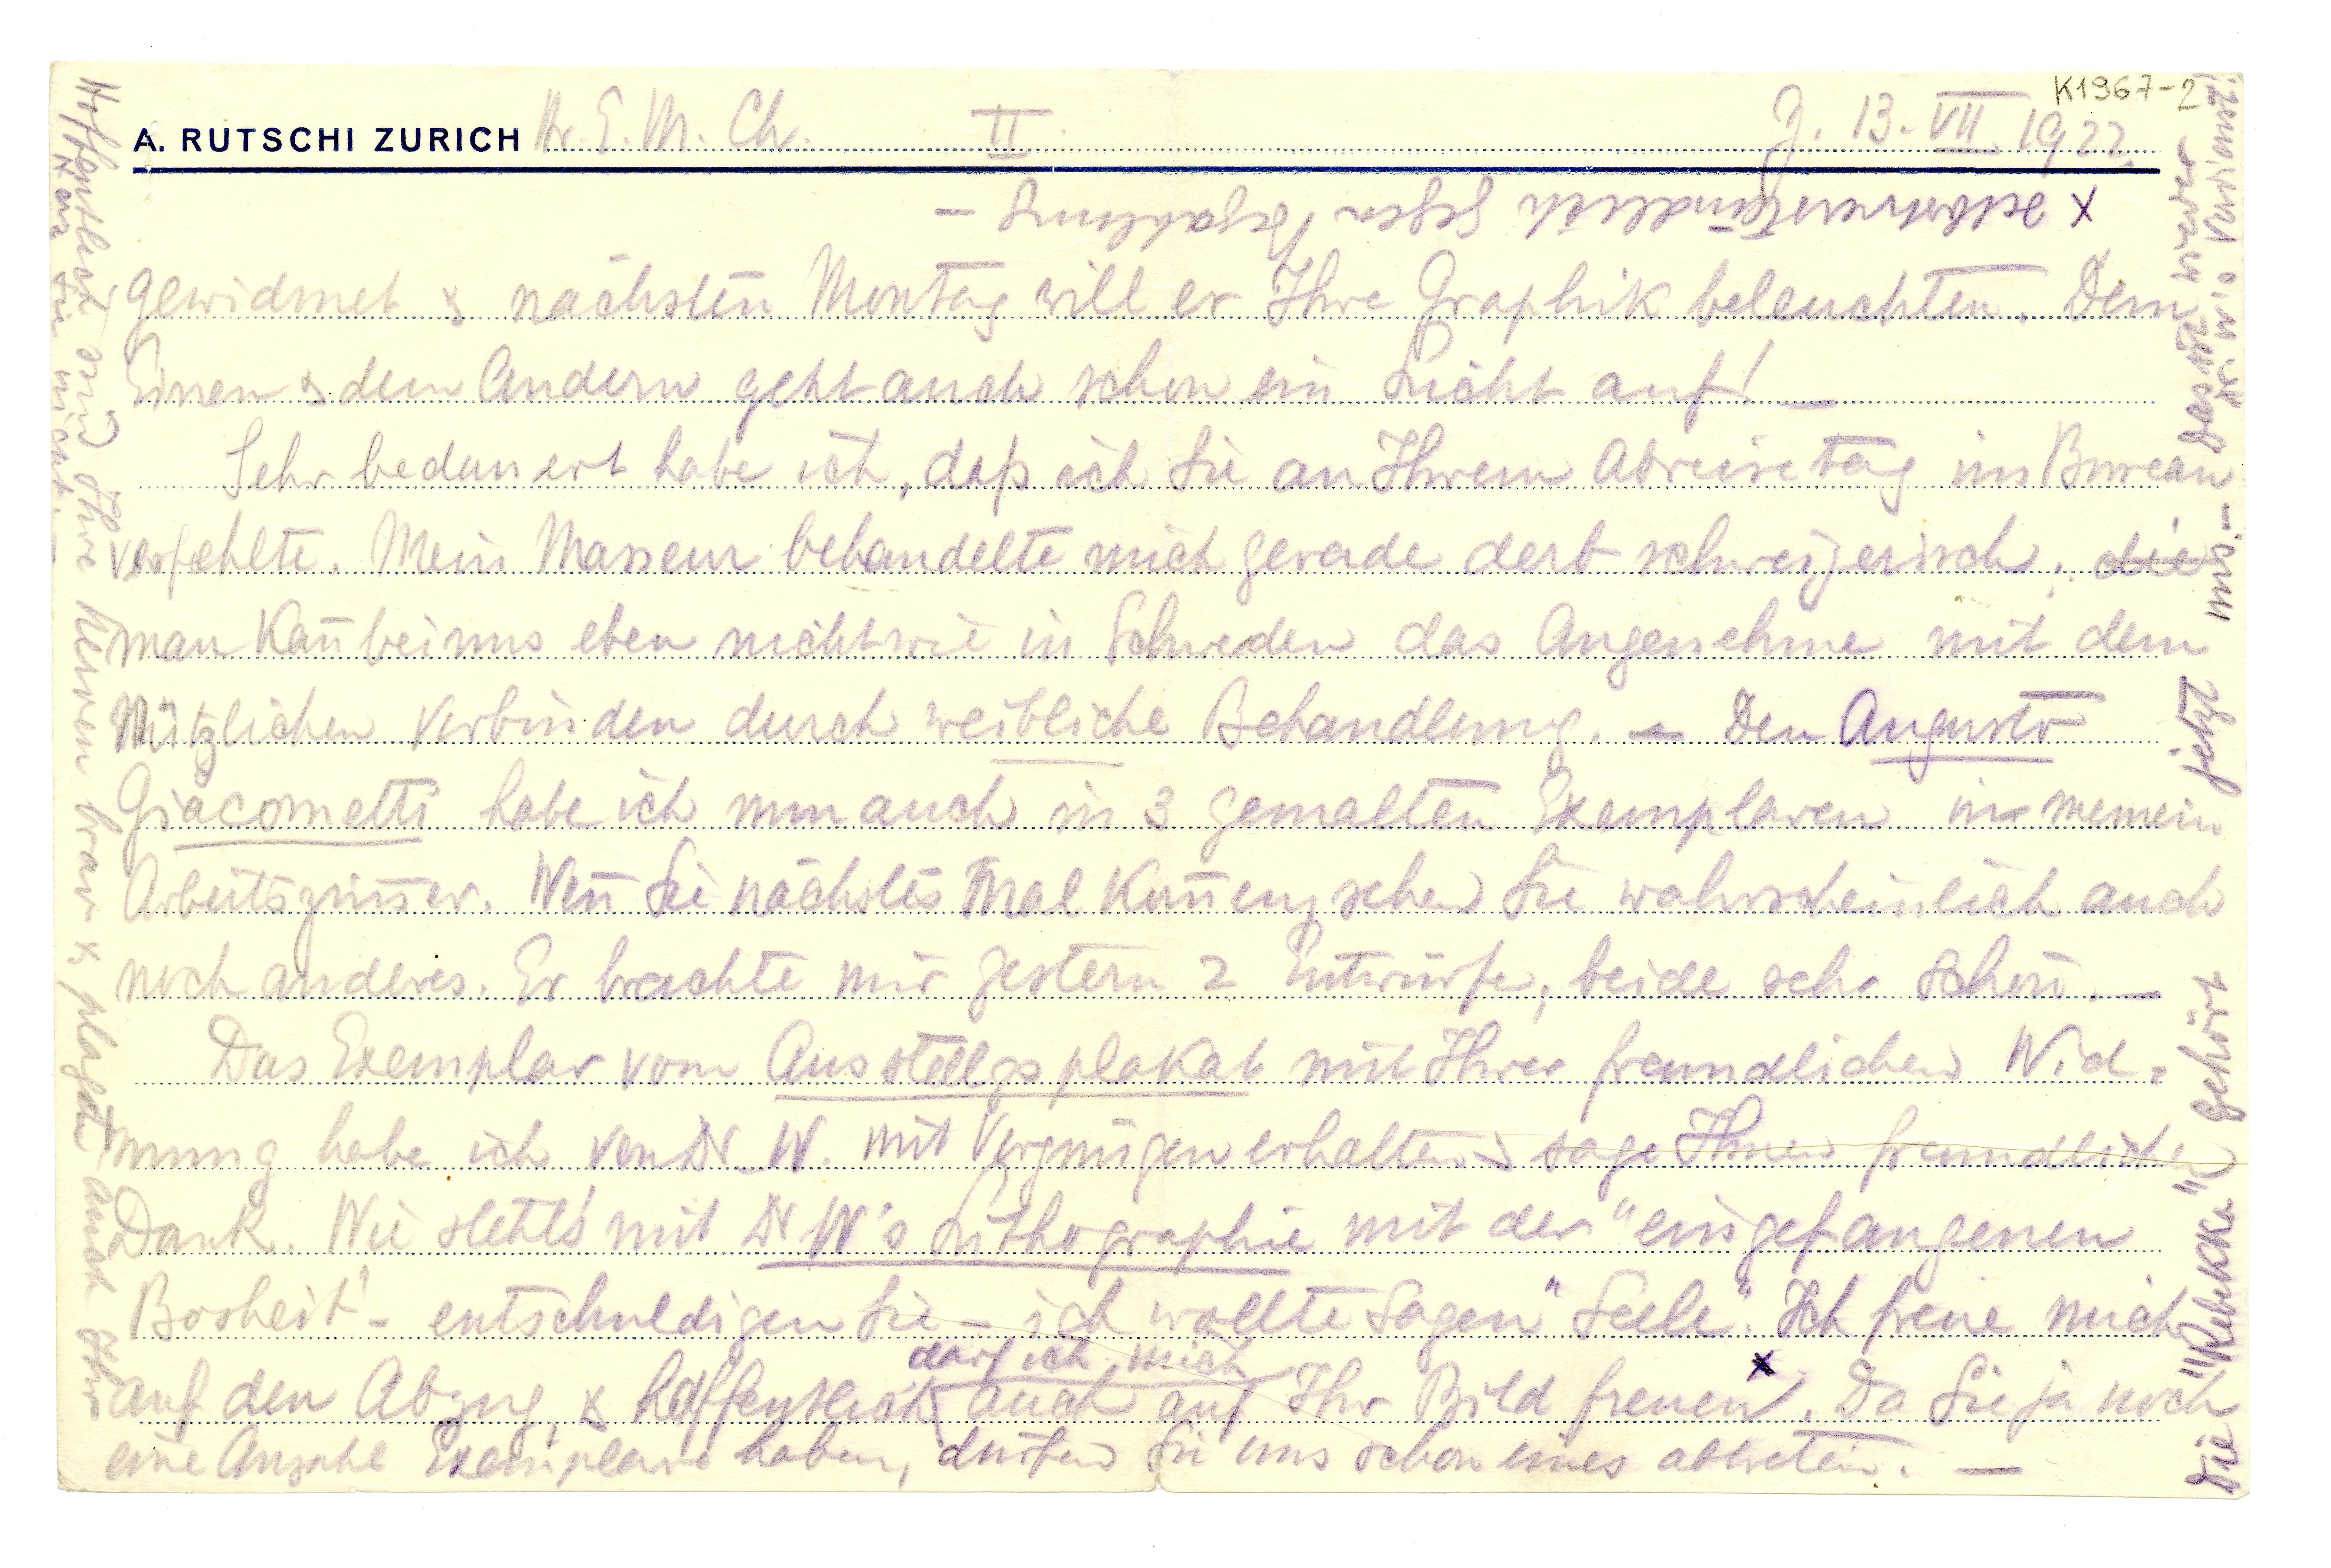 K1967-2
A. RUTSCHI ZURICH Hr. E. M. Ch. II Z. 13. VII. 1922
x selbstverständlich gegen Bezahlung –
gewidmet & nächsten Montag will er Ihre Graphik beleuchten. Dem
Einen & dem Andern geht auch schon ein Licht auf! –
Sehr bedauert habe ich, daß ich Sie an Ihrem Abreisetag im Bureau
verfehlte. Mein Masseur behandelte mich gerade derb schweizerisch, die
man kañ bei uns eben nicht wie in Schweden das Angenehme mit dem
Nützlichen verbinden durch weibliche Behandlung. – Den Augusto
Giacometti habe ich nun auch in 3 gemalten Exemplaren in meinem
Arbeitszim̄er. Weñ Sie nächstes Mal kom̄en, sehen Sie wahrscheinlich auch
noch anderes. Er brachte mir gestern 2 Entwürfe, beide sehr schön. –
Das Exemplar vom Ausstellgsplakat mit Ihrer freundlichen Wid-
mung habe ich von Dr W. mit Vergnügen erhalten & sage Ihnen freundlichen
Dank. Wie steht's mit Dr W's Lithographie mit der "eingefangenen
Bosheit" – entschuldigen Sie – ich wollte sagen "Seele". Ich freue mich
auf den Abzug, & hoffentlich darf ich mich auch auf Ihr Bild freuen x. Da Sie ja noch
eine Anzahl Exemplare haben, dürfen Sie uns schon eines abtreten. –
Die "Rebekka" gehört jetzt uns. – Das ist wieder
Hoffentlich sind Ihre Nerven brav & plagen auch Ihr
Herz Sie nicht. –